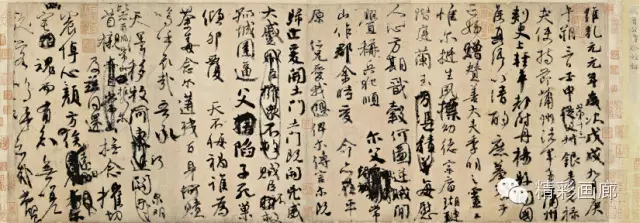 維乾元元年歲次戊戌九月庚
午朔三日壬申第十三叔銀青光祿
夫使持節蒲州諸軍事蒲州
刺史上輕車都尉丹楊縣開國
侯真卿以清酌庶羞祭于
亡姪贈贊善大夫季明之靈
惟爾挺生夙標幼德宗廟瑚璉
階庭蘭玉每慰
人心方期戩穀何圖逆賊閒
釁稱兵犯順爾父
山作郡余時受命亦在平
原仁兄愛我俾爾傳言爾既
歸止爰開土門土門既開凶威
大蹙賊臣不救
孤城圍逼父陷子死巢
傾卵覆天不悔禍誰為
荼毒念爾遘殘百身何贖
嗚乎哀哉吾承
天澤移牧河關泉明
首櫬及茲同還撫念摧切
震悼心顏方俟
魂而有知無嗟
久客嗚呼哀哉
精彩画廊